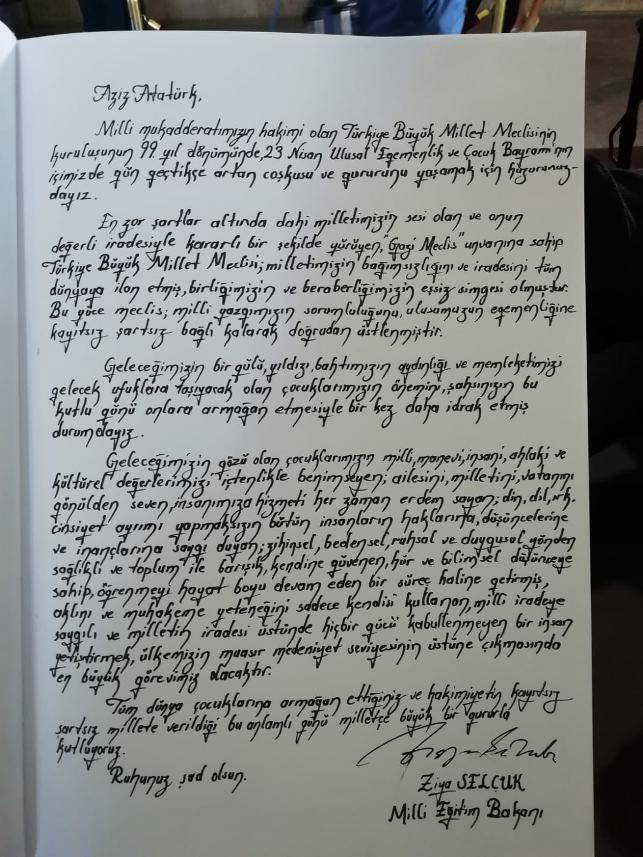 Aziz Atatürk,
Milli mukadderatımızın hakimi olan Türkiye Büyük Millet Meclisinin
kuruluşunun 99. yıl dönümünde, 23 Nisan Ulusal Egemenlik ve Çocuk Bayramı'nın
içimizde gün geçtikçe artan coşkusu ve gururunu yaşamak için huzurunuz-
dayız.
En zor şartlar altında dahi milletimizin sesi olan ve onun
değerli iradesiyle kararlı bir şekilde yürüyen, "Gazi Meclis" unvanına sahip
Türkiye Büyük Millet Meclisi; milletimizin bağımsızlığını ve iradesini tüm
dünyaya ilan etmiş, birliğimizin ve beraberliğimizin eşsiz simgesi olmuştur.
Bu yüce meclis; milli yazgımızın sorumluluğunu, ulusumuzun egemenliğine
kayıtsız şartsız bağlı kalarak doğrudan üstlenmiştir.
Geleceğimizin bir gülü, yıldızı, bahtımızın aydınlığı ve memleketimizi
gelecek ufuklara taşıyacak olan çocuklarımızın önemini, şahsınızın bu
kutlu günü onlara armağan etmesiyle bir kez daha idrak etmiş
durumdayız.
Geleceğimizin gözü olan çocuklarımızın milli, manevi, insani, ahlaki ve
kültürel değerlerimizi içtenlikle benimseyen; ailesini, milletini, vatanını
gönülden seven, insanımıza hizmeti her zaman erdem sayan; din, dil, ırk,
cinsiyet ayrımı yapmaksızın bütün insanların haklarına, düşüncelerine
ve inançlarına saygı duyan; zihinsel, bedensel, ruhsal ve duygusal yönden
sağlıklı ve toplum ile barışık, kendine güvenen, hür ve bilimsel düşünceye
sahip, öğrenmeyi hayat boyu devam eden bir süreç haline getirmiş,
aklını ve muhakeme yeteneğini sadece kendisi kullanan, milli iradeye
saygılı ve milletin iradesi üstünde hiçbir gücü kabullenmeyen bir insan
yetiştirmek, ülkemizin muasır medeniyet seviyesinin üstüne çıkmasında
en büyük görevimiz olacaktır.
Tüm dünya çocuklarına armağan ettiğiniz ve hakimiyetin kayıtsız
şartsız millete verildiği bu anlamlı günü milletçe büyük bir gururla
kutluyoruz.
Ruhunuz şad olsun.
Ziya SELÇUK
Milli Eğitim Bakanı